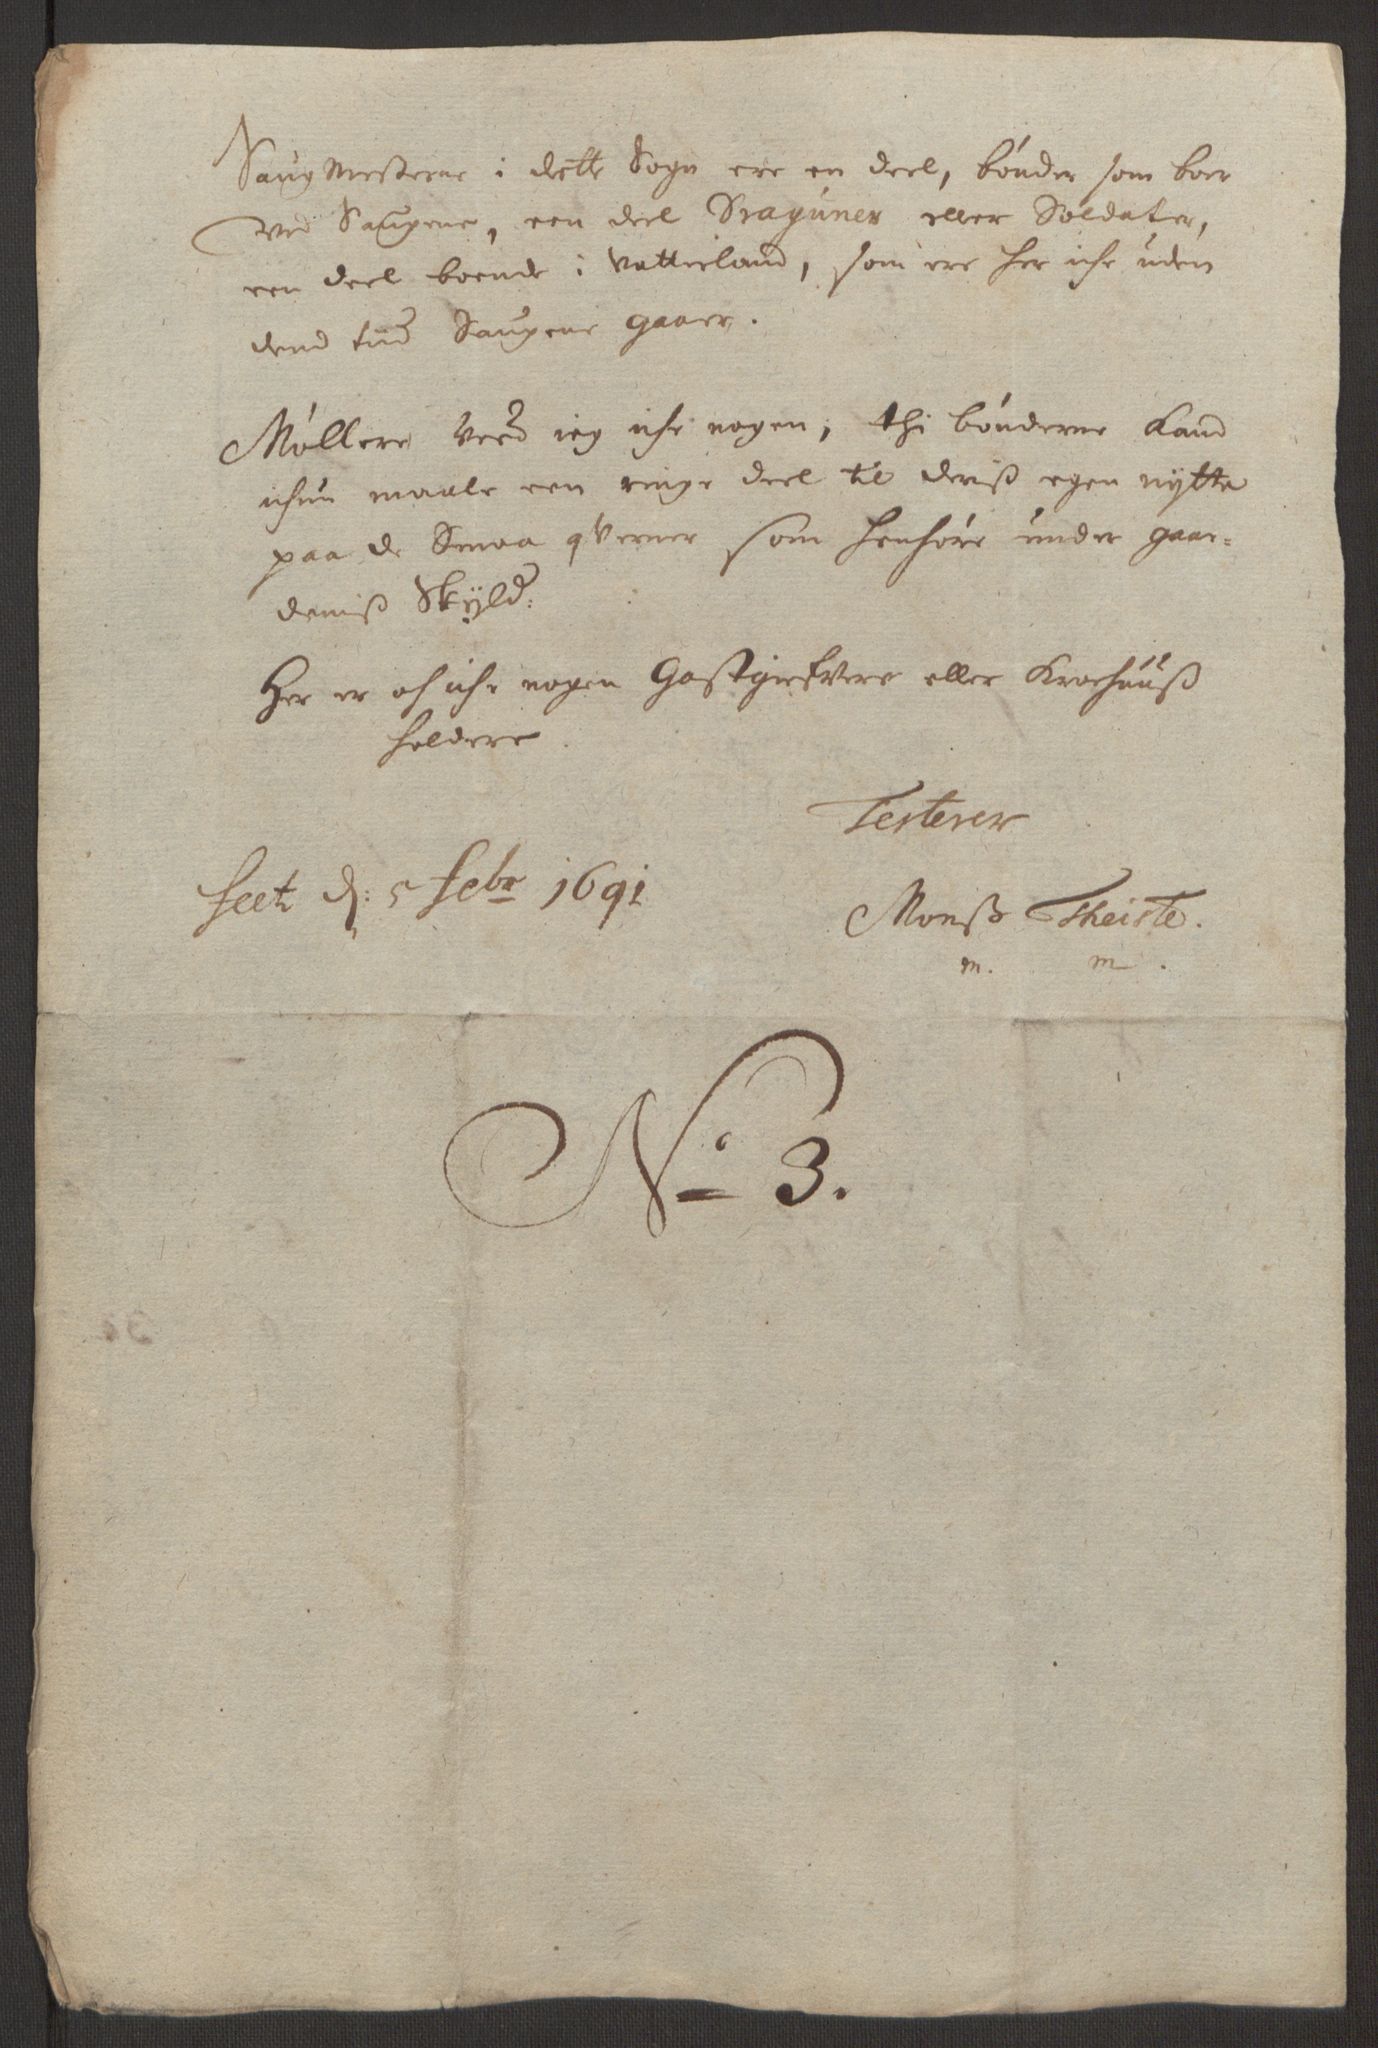 Saug Mesterne i dette Sogn ere en deel, bønder som boer
ved Saugene, een deel Draguner eller Soldater,
een deel boende i Vatterland, som ere her iche uden
dend tiid Saugene gaaer.
Møllere veed ieg iche nogen, thi bønderne kand
ichun maale een ringe deel til deriß egen nytte
paa de Smaa qverner som henhøre under gaar-
deniß Skyld:
Her er och iche nogen Gastgiefvere eller Kroehuuß
holdere
Testerer
feet d: 5 febr 1691
Monß Theiste.
m. m.
No 3.